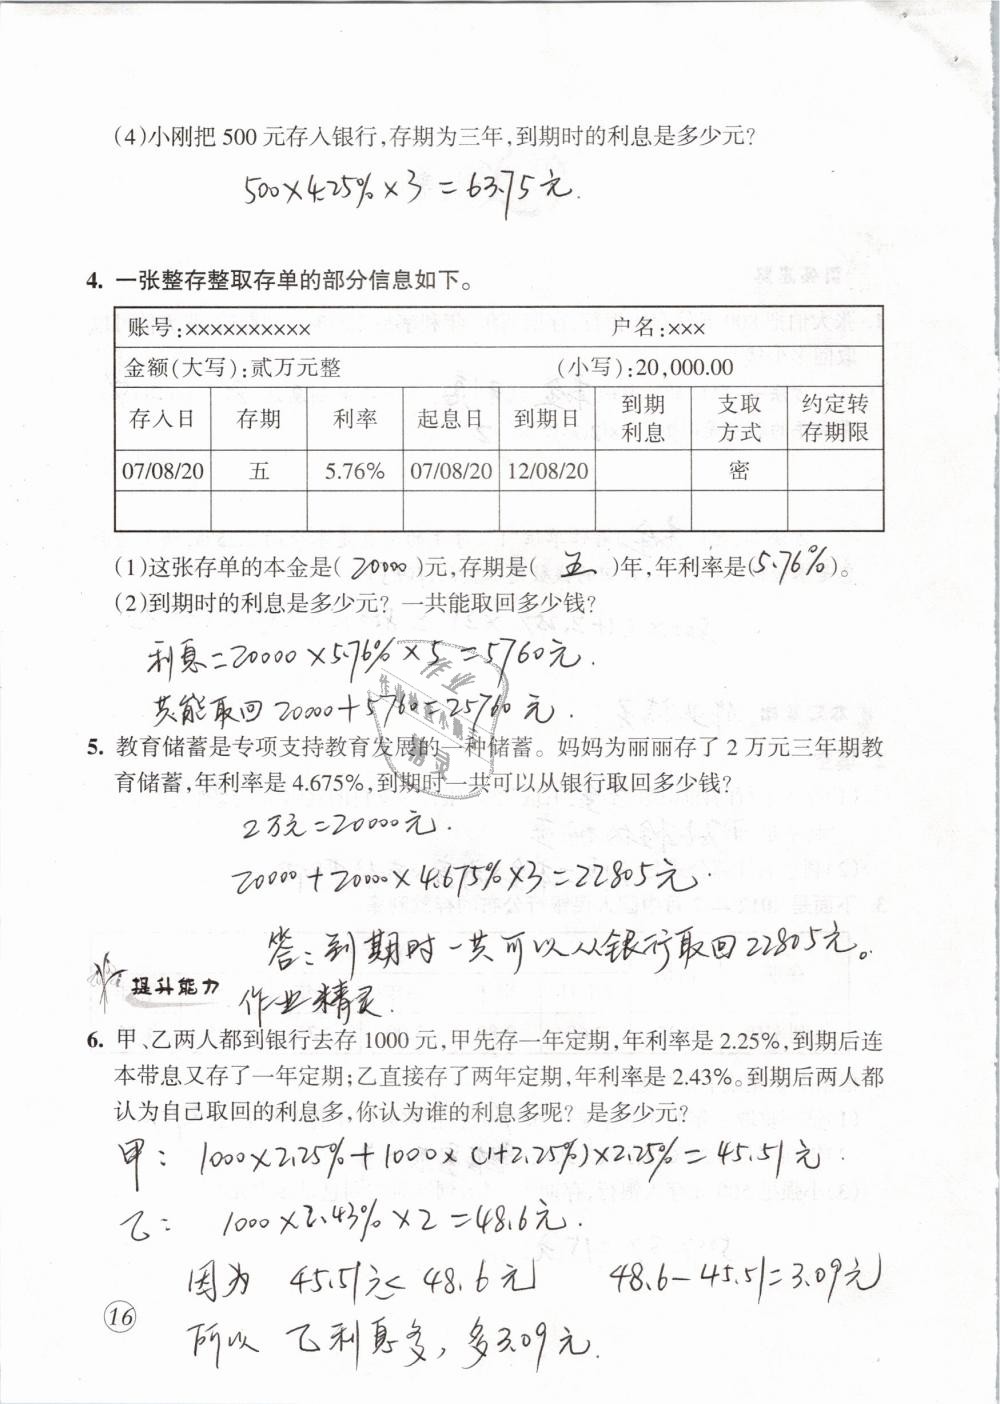 (4)小刚把 500 元存入银行,存期为三年,到期时的利息是多少元?
500×4.25%×3=63.75元.
4. 一张整存整取存单的部分信息如下。
账号:×××××××××× 户名:×××
金额(大写):贰万元整 (小写):20,000.00
存入日 存期 利率 起息日 到期日 到期利息 支取方式 约定转存期限
07/08/20 五 5.76% 07/08/20 12/08/20 密
(1)这张存单的本金是( 20000 )元,存期是( 五 )年,年利率是(5.76%)。
(2)到期时的利息是多少元? 一共能取回多少钱?
利息=20000×5.76%×5=5760元.
共能取回 20000+5760=25760元.
5. 教育储蓄是专项支持教育发展的一种储蓄。妈妈为丽丽存了 2 万元三年期教
育储蓄,年利率是 4.675%,到期时一共可以从银行取回多少钱?
2万元=20000元.
20000+20000×4.675%×3=22805元.
答:到期时一共可以从银行取回22805元。
提升能力
作业精灵.
6. 甲、乙两人都到银行去存 1000 元,甲先存一年定期,年利率是 2.25%,到期后连
本带息又存了一年定期;乙直接存了两年定期,年利率是 2.43%。到期后两人都
认为自己取回的利息多,你认为谁的利息多呢? 是多少元?
甲: 1000×2.25%+1000×(1+2.25%)×2.25%=45.51元.
乙: 1000×2.43%×2=48.6元.
因为 45.51元<48.6元 48.6-45.51=3.09元
所以 乙利息多,多3.09元.
16